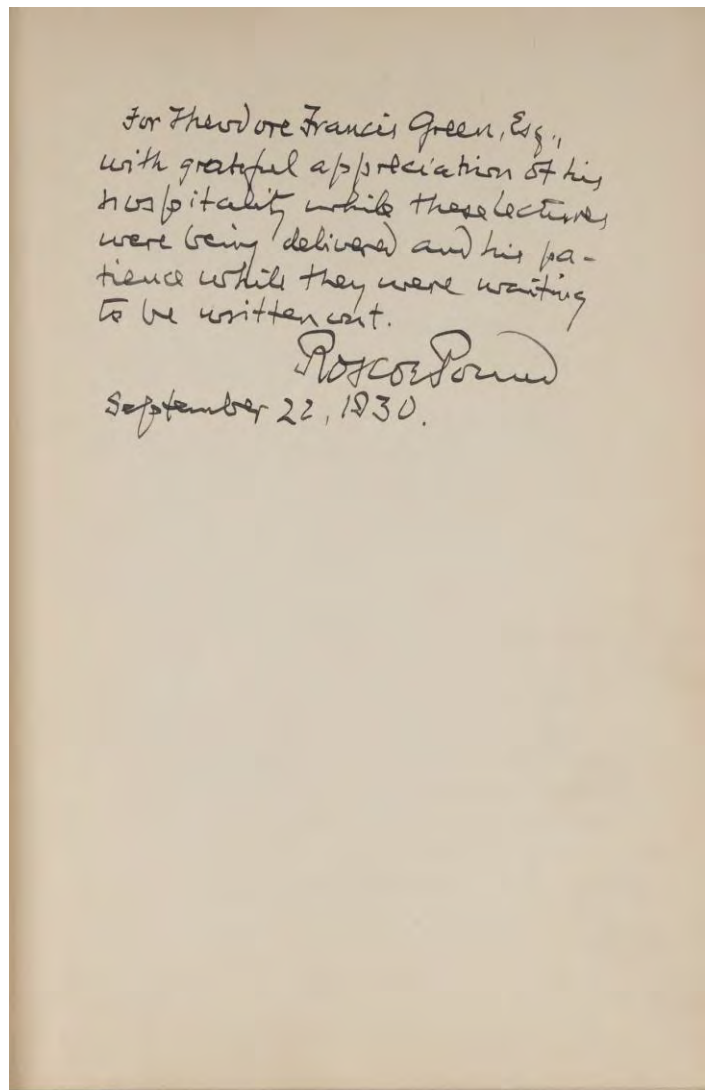 For Theodore Francis Green, Esq.,
with grateful appreciation of his
hospitality while these lectures
were being delivered and his pa-
tience while they were waiting
to be written out.
Roscoe Pound
September 22, 1930.